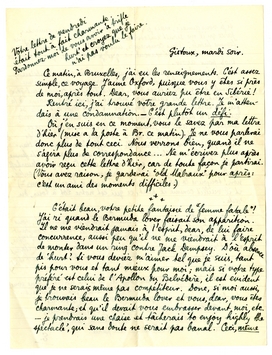 Votre lettre de vendredi
était tout à fait charmante.
Pardonnez-moi de vous avoir
mais pas vous le faire.
Gistoux, mardi soir.
Ce matin, à Bruxelles, j'ai eu les renseignements. C'est assez
simple, ce voyage. J'aime Oxford, puisque vous y êtes si près
de moi, et après tout, beau, vous auriez pu être en Sibérie!
Rentré ici, j'ai trouvé votre grande lettre. Je m'atten-
dais à une condamnation. — C'est plutôt un défi.
Où j'en suis en ce moment, vous le savez par ma lettre
d'hier (mise à la poste à Br. ce matin). Je ne vous parlerai
donc plus de tout ceci. Nous verrons bien, quand il ne
s'agira plus de correspondance... Si vous m'écrivez plus après
avoir reçu cette lettre d'hier, car de toute façon je partirai.
(Vous avez raison, je garderai "old Malraux" pour après:
c'est un ami des moments difficiles.)
C'était beau, votre petite fantaisie de "femme fatale".
J'ai ri quand le Bermuda lover faisait son apparition.
Il ne me viendrait jamais à l'esprit, dear, de lui faire
concurrence, aussi peu qu'il ne me viendrait à l'esprit
de monter dans un ring contre Jack Dempsey.
de "hurt". Si vous deviez m'aimer tel que je suis, tant
pis pour vous et tant mieux pour moi; mais si votre type
préféré est celui de l'Apollon du Belvédère, il est évident
que je ne serai même pas compétiteur. Donc, si moi aussi,
je trouvais beau le Bermuda lover et vous, dear, vous êtes
charmante, et qu'il devrait vous embrasser devant moi, etc.
— je prendrais une chaise et tâcherais to enjoy highly, le
spectacle, qui sans doute ne serait pas banal. Ceci, même